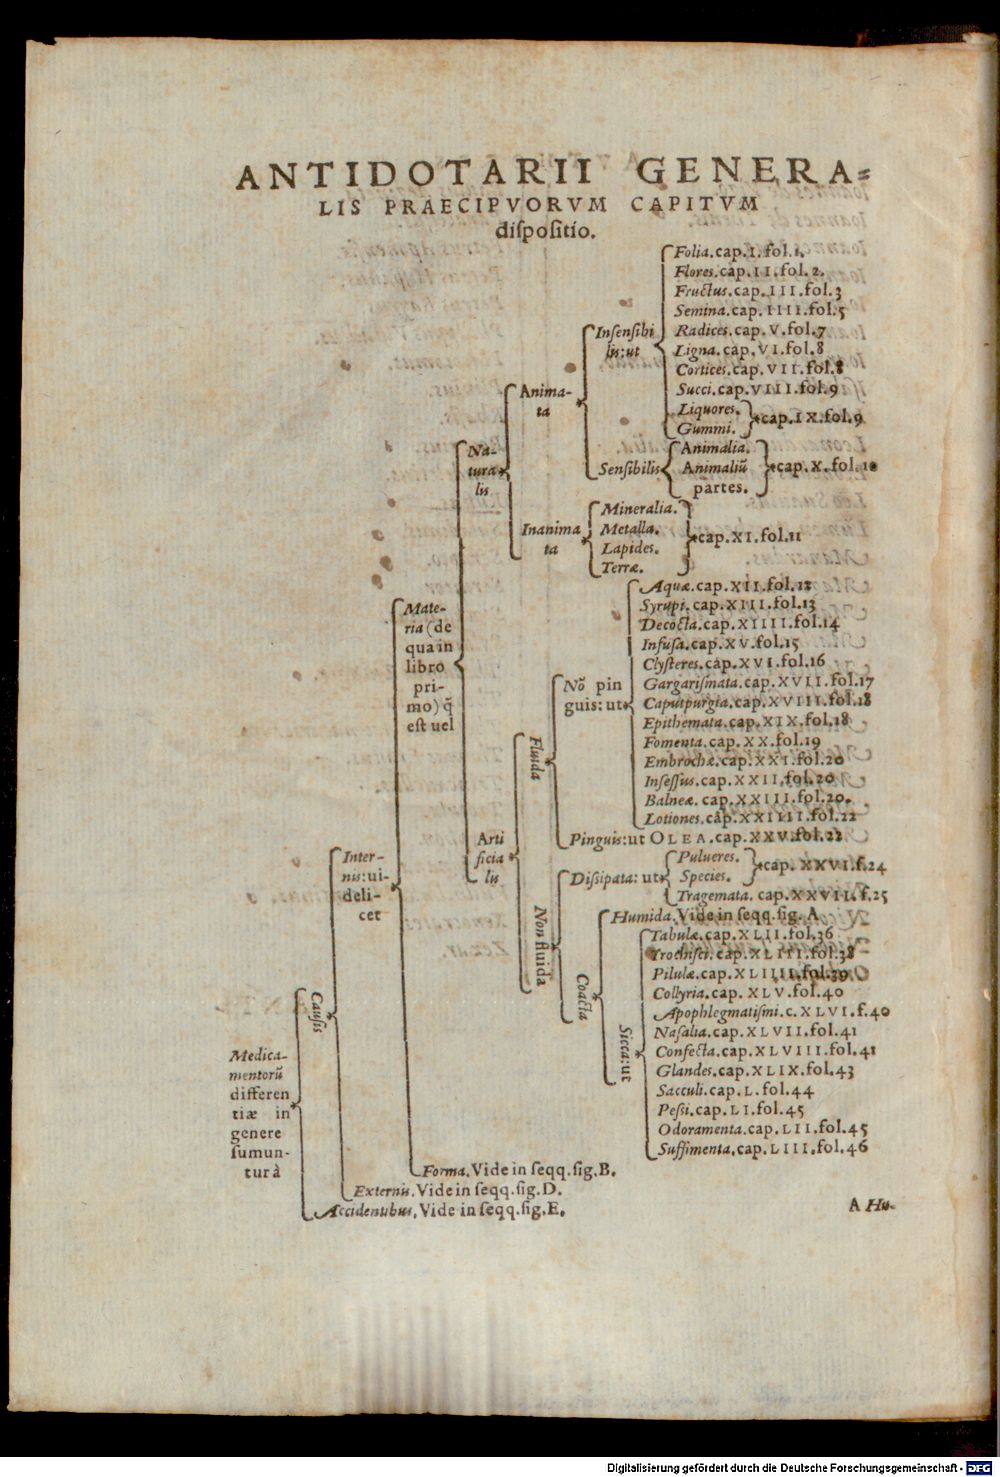 ANTIDOTARII GENERA=
LIS PRAECIPVORVM CAPITVM
diſpoſitio.
Medica-
mentorū
differen
tiæ in
genere
ſumun-
tur à
Cauſis
Inter-
nis: ui-
deli-
cet
Mate-
ria (de
qua in
libro
pri-
mo) q̃
eſt uel
Na-
tura
lis
Anima-
ta
Inſenſibi
lis: ut
Folia. cap. I. fol. 1.
Flores. cap. II. fol. 2.
Fructus. cap. III. fol. 3
Semina. cap. IIII. fol. 5
Radices. cap. V. fol. 7
Ligna. cap. VI. fol. 8
Cortices. cap. VII. fol. 8
Succi. cap. VIII. fol. 9
Liquores.
Gummi.
cap. IX. fol. 9
Senſibilis
Animalia.
Animaliū
partes.
cap. X. fol. 10
Inanima
ta
Mineralia.
Metalla.
Lapides.
Terræ.
cap. XI. fol. 11
Arti
ficia
lis
Fluida
Nō pin
guis: ut
Aquæ. cap. XII. fol. 12
Syrupi. cap. XIII. fol. 13
Decocta. cap. XIIII. fol. 14
Infuſa. cap. XV. fol. 15
Clyſteres. cap. XVI. fol. 16
Gargariſmata. cap. XVII. fol. 17
Caputpurgia. cap. XVIII. fol. 18
Epithemata. cap. XIX. fol. 18
Fomenta. cap. XX. fol. 19
Embrochæ. cap. XXI. fol. 20
Inſeſſus. cap. XXII. fol. 20
Balneæ. cap. XXIII. fol. 20.
Lotiones. cap. XXIIII. fol. 22
Pinguis: ut OLEA. cap. XXV. fol. 22
Non fluida
Diſsipata: ut
Pulueres.
Species.
cap. XXVI. f. 24
Tragemata. cap. XXVII. f. 25
Coacta
Humida. Vide in ſeqq. ſig. A
Sicca: ut
Tabulæ. cap. XLII. fol. 36
Trochiſci. cap. XLIII. fol. 38
Pilulæ. cap. XLIIII. fol. 39
Collyria. cap. XLV. fol. 40
Apophlegmatiſmi. c. XLVI. f. 40
Naſalia. cap. XLVII. fol. 41
Confecta. cap. XLVIII. fol. 41
Glandes. cap. XLIX. fol. 43
Sacculi. cap. L. fol. 44
Peſsi. cap. LI. fol. 45
Odoramenta. cap. LII. fol. 45
Suffimenta. cap. LIII. fol. 46
Forma. Vide in ſeqq. ſig. B.
Externis. Vide in ſeqq. ſig. D.
Accidentibus. Vide in ſeqq. ſig. E.
A Hu-
Digitalisierung gefördert durch die Deutsche Forschungsgemeinschaft - DFG